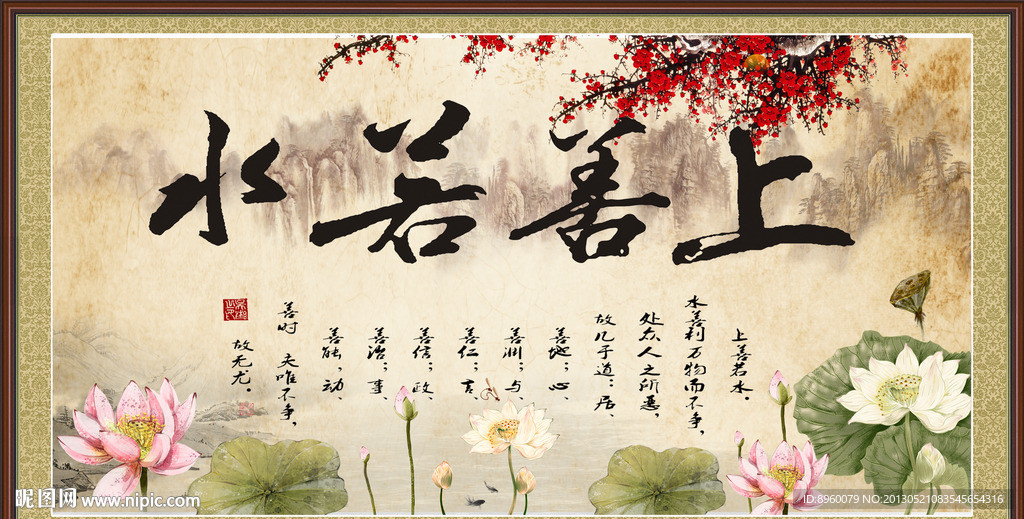 上善若水
上善若水。
水善利万物而不争，
处众人之所恶，
故几于道；居、
善地；心、
善渊；与、
善仁；言、
善信；政、
善治；事、
善能；动、
善时 夫唯不争，
故无尤。
昵图网 www.nipic.com
ID:8960079 NO:20130521083545654316